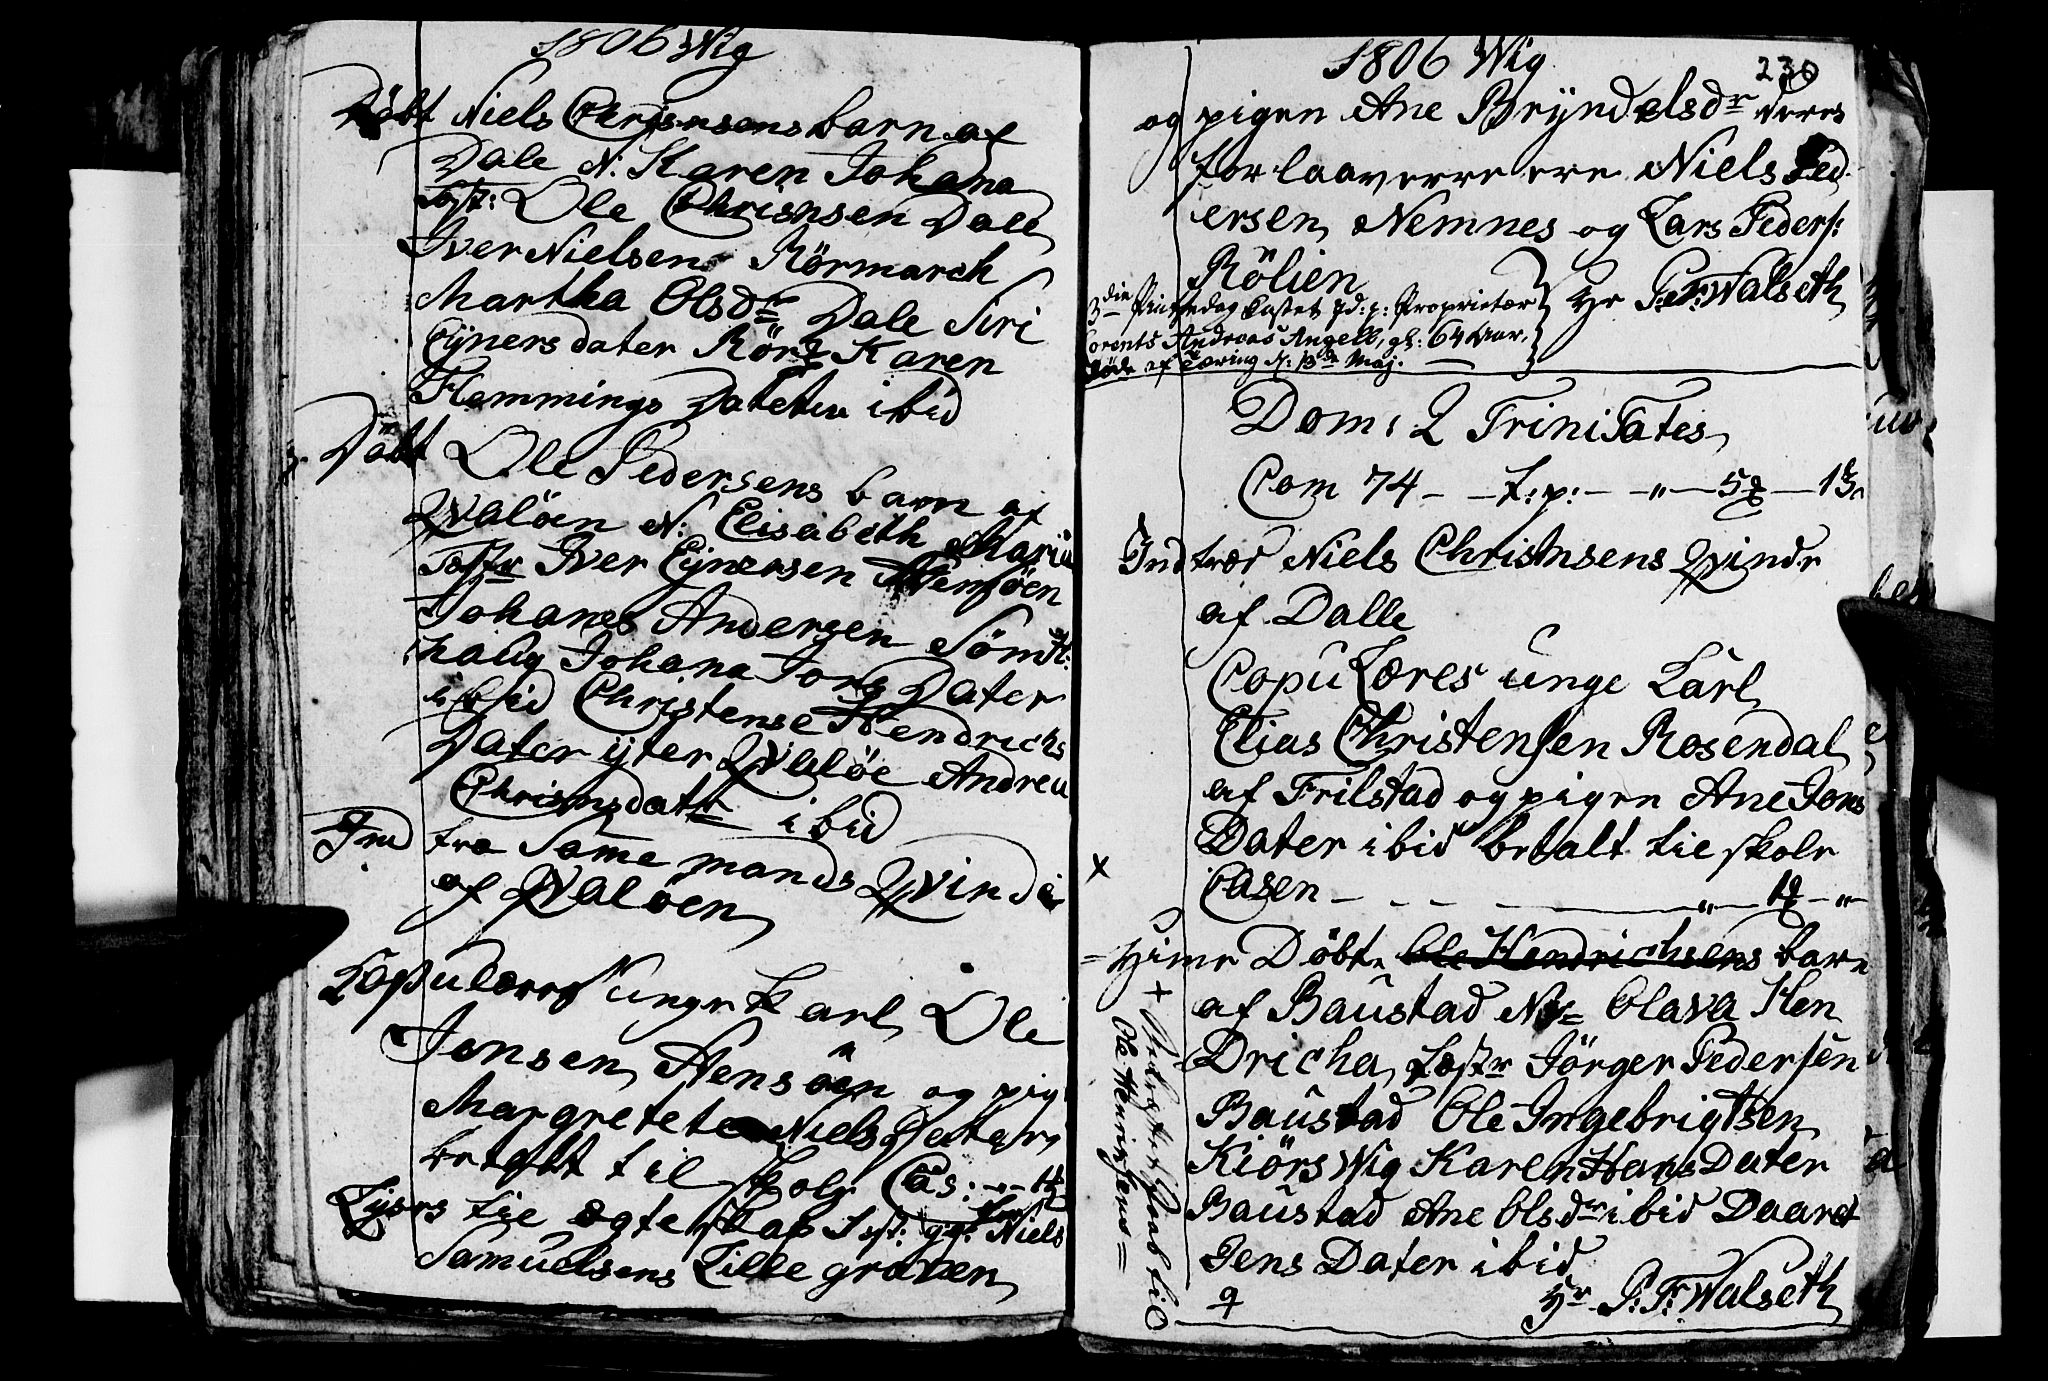 1806 Wig
Döbt Niels Chrisnsens barn af
Dale N: Karen Johana
Test: Ole Chrisnsen Dale
Iver Nielsen Rörmarch
Martha Olsdr Dale Siri
Ejners dater Rör Karen
Flemmings Datter ibid
Döbt Ole Pedersens barn af
Qvalöen N: Elisabeth Maria
Testr Iver Ejnersen Hensöen
Johanes Andersen Sömt
haug Johana Jons Dater
ibid Christense Hendrichs
Dater ÿter Qvalöe Andrea
Chrisnsdatr ibid
Ind tra Same mands Qvinde
af Qvalöen
Copuleres unge Karl Ole
Jensen Hensöen og pig
Margrete Niels Dater
betalt til skole Cas:
Lyses tie ægteskab
Samuelsens Lille graven Niels
1806 Wig 230
og pigen Ane Bryndelsdr deres
forlaaverre ere Niels Ped
ersen Nemnes og Lars Peders:
Rölien
3die Pintsedag kastet Jd: p: Proprietær Hr P: F: Walseth
Lorents Andreas Angell, gl: 64 Aar,
döde af Tæring d: 13de Maj.
Dom: 2 Trinitates
Com 74 - - f:p: - - " - 5 - 13
Indtræd Niels Chrisnsens Qvinde
af Dalle
Copulæres unge Karl
Elias Christensen Rosendal
af Frilstad og pigen Ane Jons
Dater ibid betalt tie skole
x Casen - - - - " - 1 - "
= Hime Döbt Ole Hendrichsens barn
af Baustad N= Olava Hen
Dricha, testr Jörger Pedersen
Baustad Ole Ingebrigtsen
Kiörs Wig Karen Hans Dater
Baustad Ane Olsdr ibid Daaret
Jens Dater ibid
9 Hr P: F: Walseth
+
Ole Henrichsens =